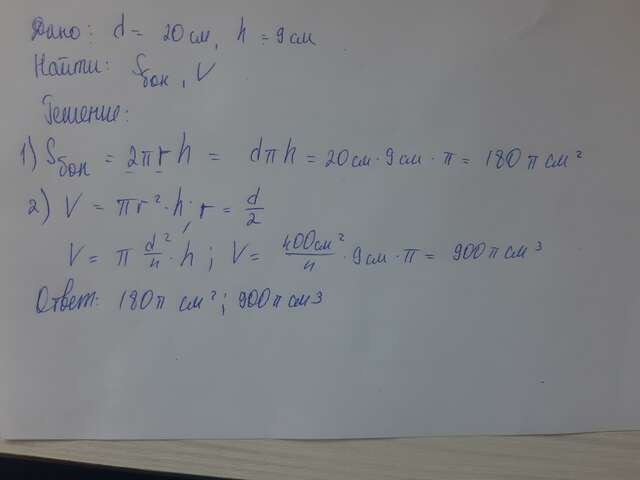 Дано: d = 20 см, h = 9 см
Найти: Sбок, V
Решение:
1) Sбок = 2πrh = dπh = 20см·9см·π = 180π см²
2) V = πr²·h; r = d/2
V = π d²/4·h; V = 400см²/4·9см·π = 900π см³
Ответ: 180π см²; 900π см³